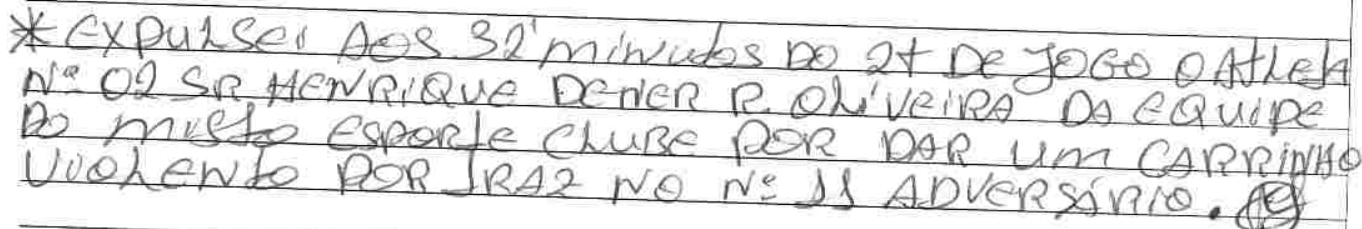 * EXPULSEI AOS 32' MINUTOS DO 2t DE JOGO O AthLetA
Nº 02 SR HENRIQUE DENER R. OLIVEIRA DA EQUIPE
DO MISTO ESPORTE CLUBE POR DAR UM CARRINHO
VIOLENTO POR TRAZ NO Nº 11 ADVERSÁRIO.